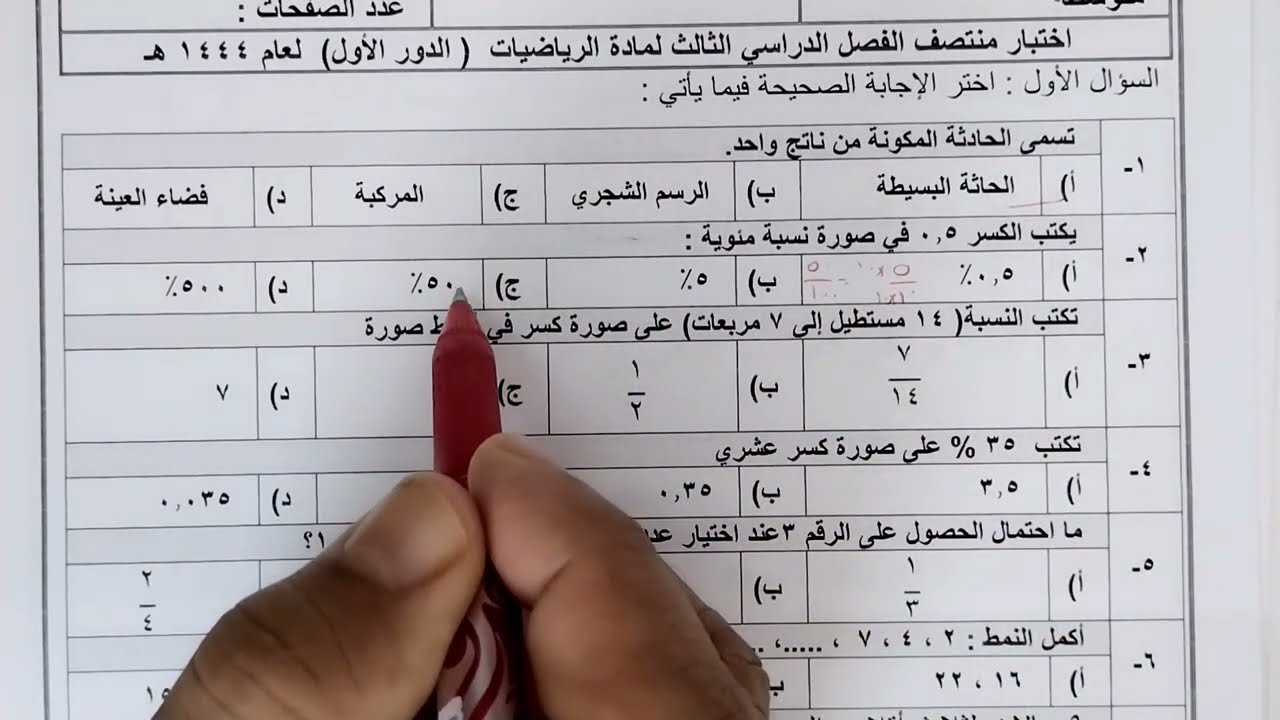 عدد الصفحات :
اختبار منتصف الفصل الدراسي الثالث لمادة الرياضيات ( الدور الأول) لعام ١٤٤٤ هـ
السؤال الأول : اختر الإجابة الصحيحة فيما يأتي :
١- تسمى الحادثة المكونة من ناتج واحد.
أ) الحاثة البسيطة ب) الرسم الشجري ج) المركبة د) فضاء العينة
٢- يكتب الكسر ٠,٥ في صورة نسبة مئوية :
أ) ٠,٥٪ ب) ٥٪ ج) ٥٠٪ د) ٥٠٠٪
٣- تكتب النسبة( ١٤ مستطيل إلى ٧ مربعات) على صورة كسر في صورة
أ) ٧/١٤ ب) ١/٢ ج) د) ٧
٤- تكتب ٣٥ % على صورة كسر عشري
أ) ٣,٥ ب) ٠,٣٥ د) ٠,٠٣٥
٥- ما احتمال الحصول على الرقم ٣عند اختيار
أ) ١/٣ ب) ٢/٤
٦- أكمل النمط : ٢ ، ٤ ، ٧ ، .....، ..
أ) ١٦ ، ٢٢ ب)